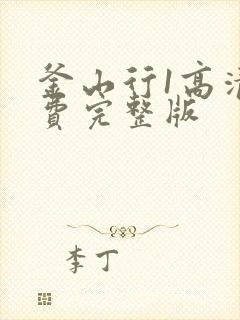 釜山行1高清
費完整版
李丁